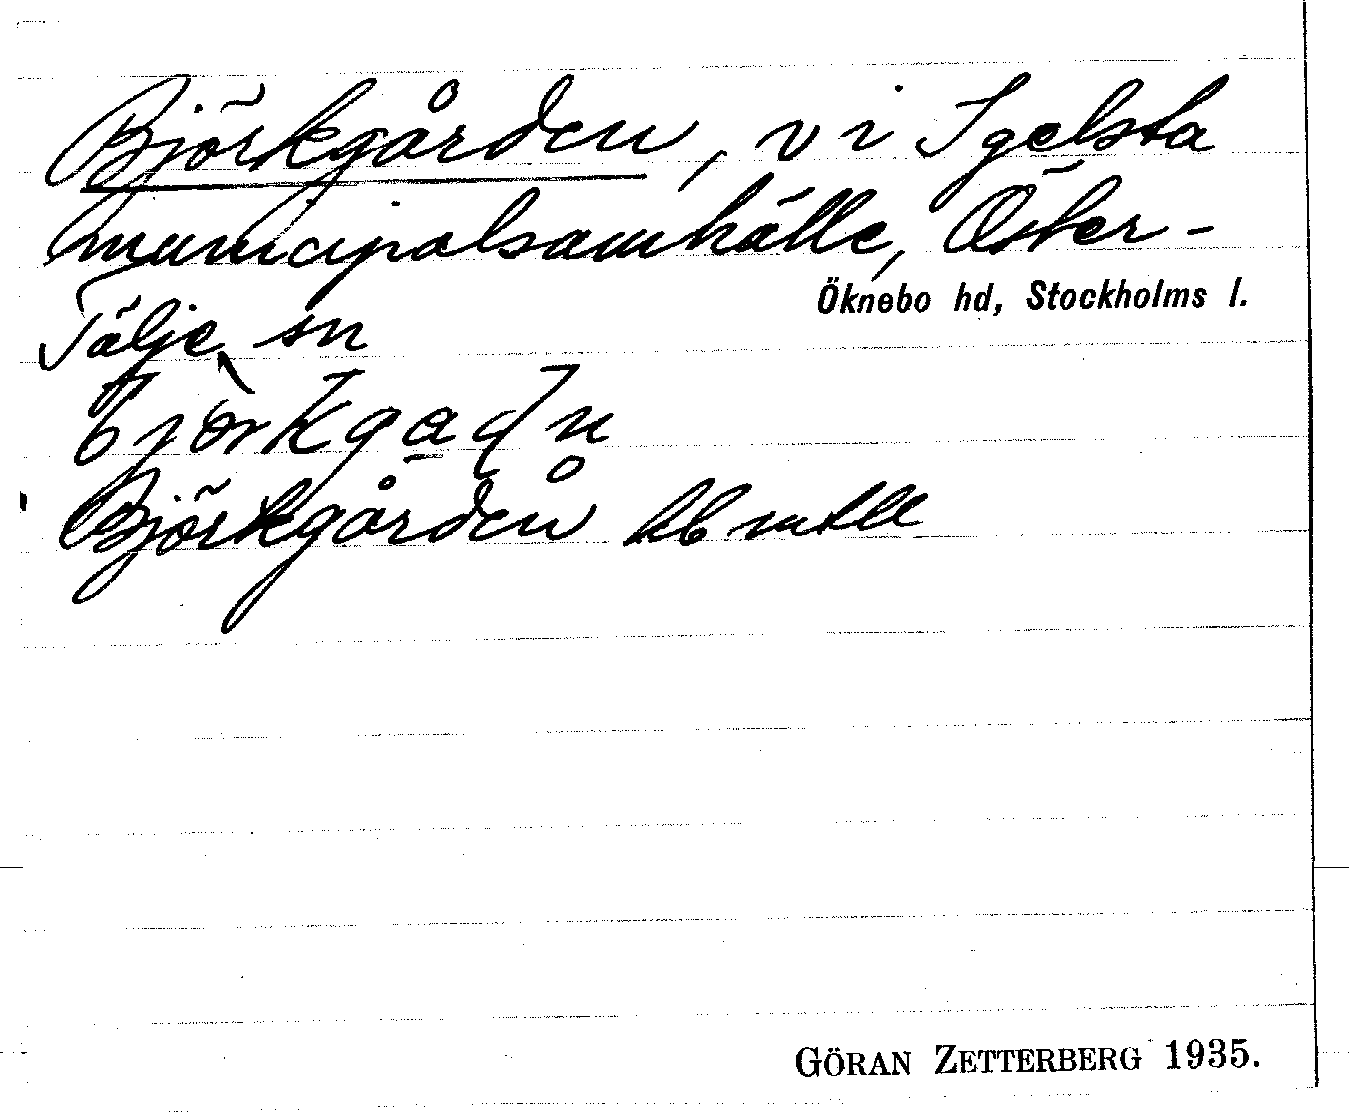 Björkgården, v i Igelsta
municipalsamhälle, Öster-
Öknebo hd, Stockholms l.
Tälje sn
Björkgården
GÖRAN ZETTERBERG 1935.